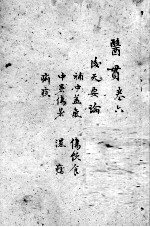 醫貫卷六
後天要論
補中益氣
傷飲食
中暑傷暑
濕
瘧
痢疾